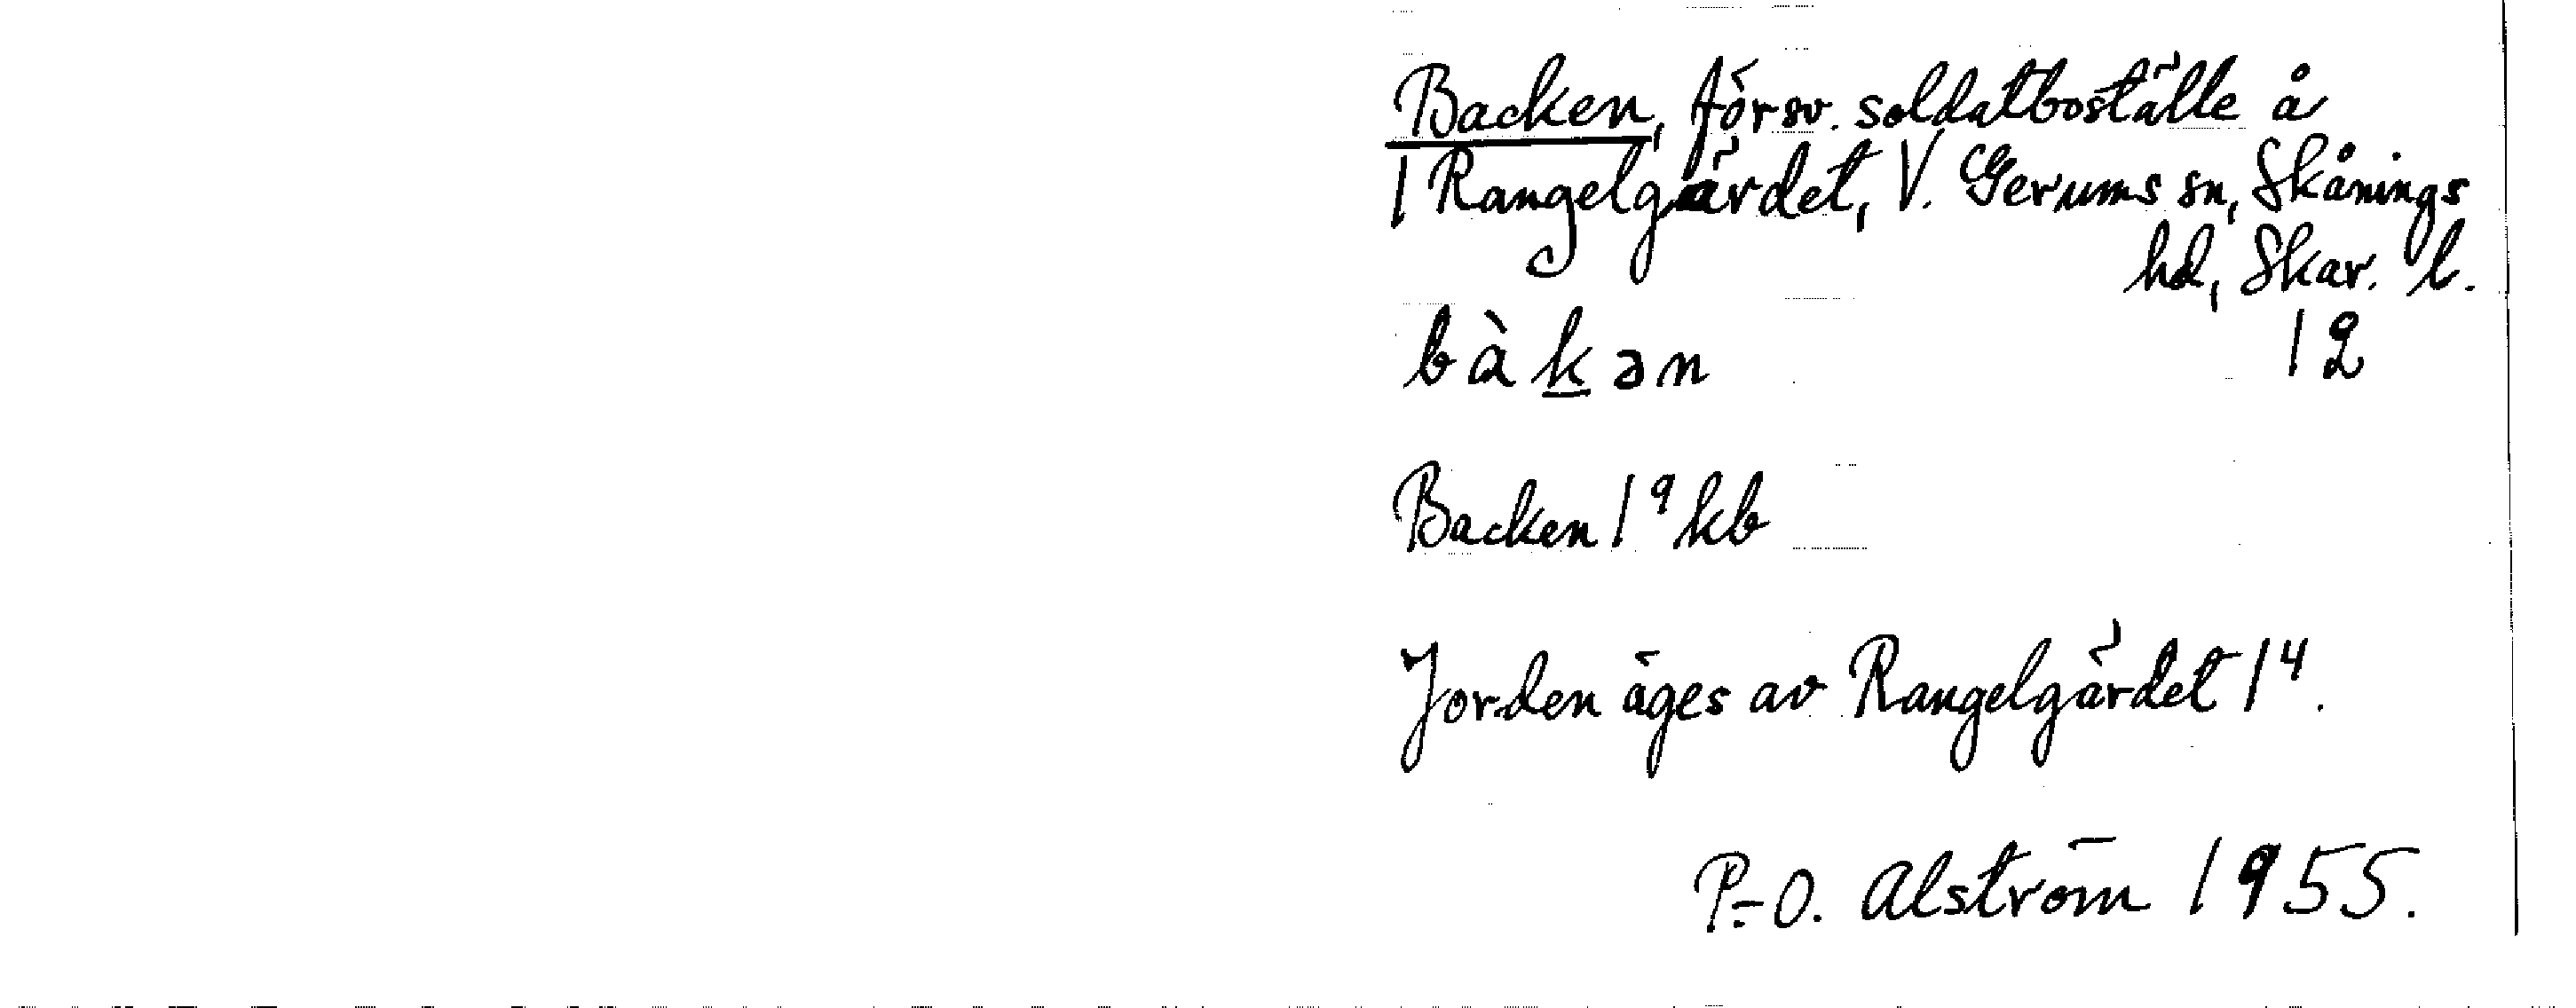 Backen, försv. soldatboställe å
1 Rangelgärdet, V. Gerums sn, Skånings
hd, Skar. l.
bàkən 12
Backen 1⁹ kb
Jorden äges av Rangelgärdet 1⁴.
P.-O. Alström 1955.